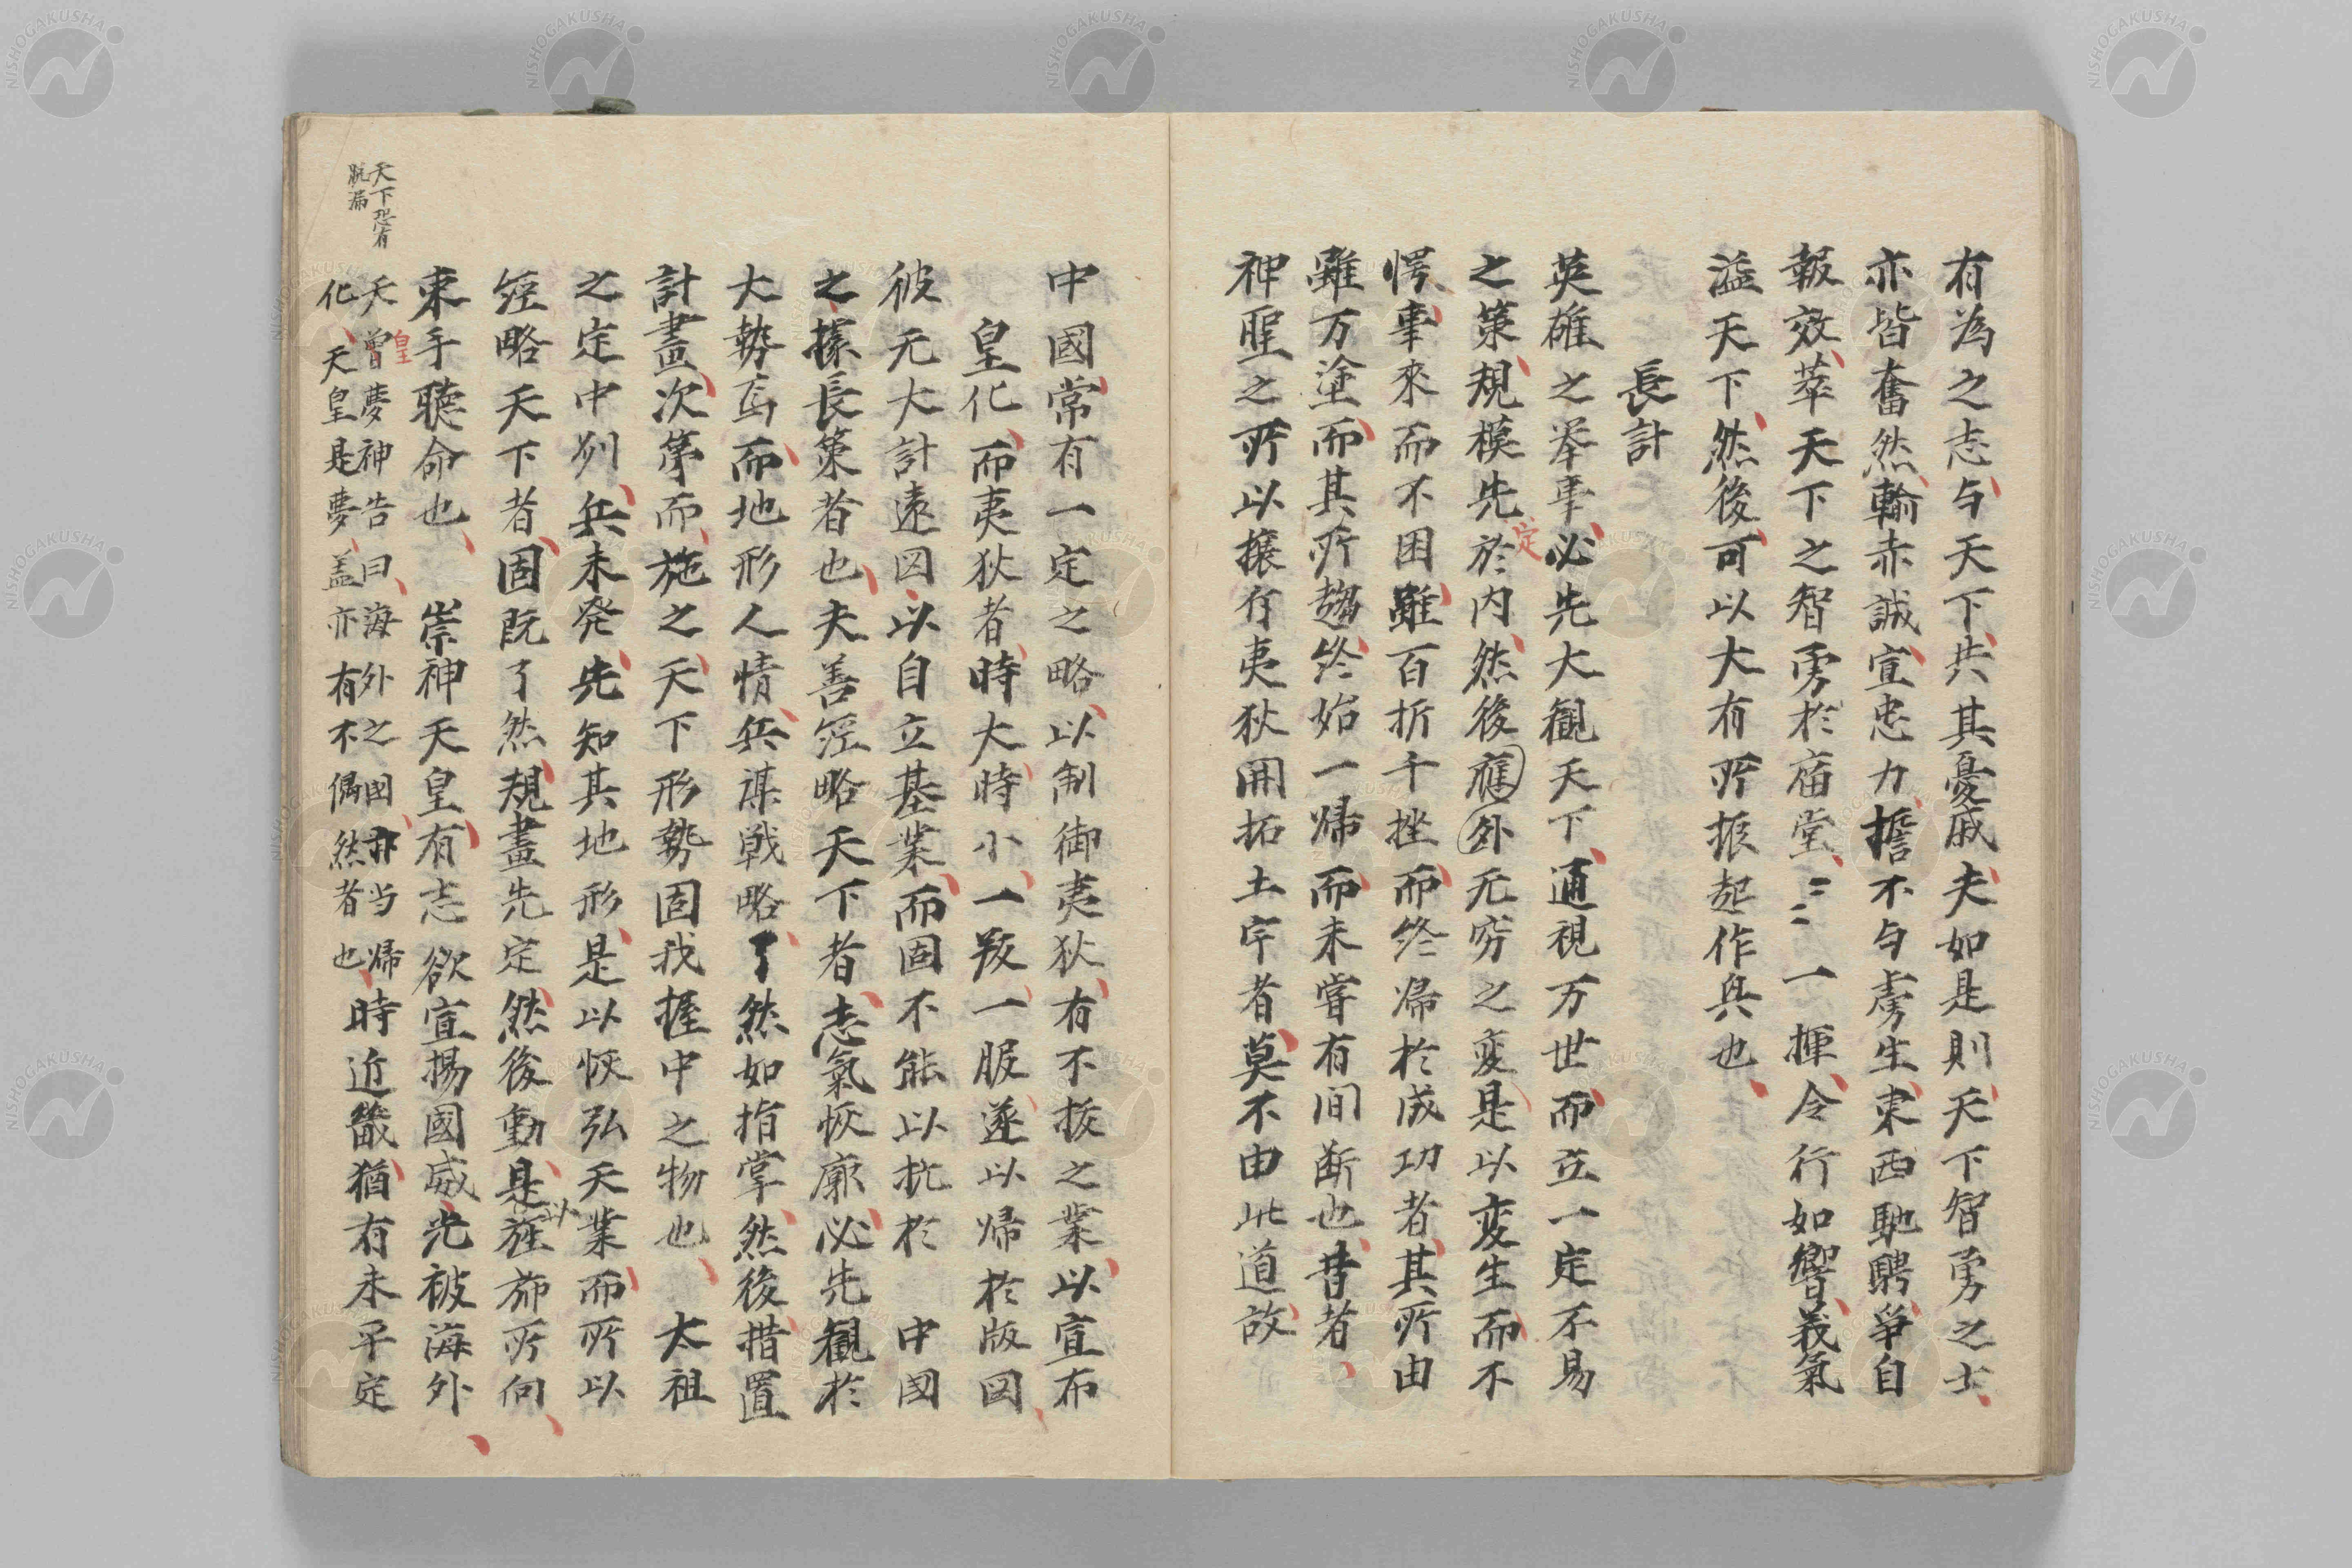 有為之志、与天下、共其憂戚、夫如是則、天下智勇之士、
亦皆奮然、輸赤誠、宣忠力、擔不与虜生、東西馳騁、爭自
報效、萃天下之智勇於庿堂、〻〻一揮、令行如響、義氣
溢天下、然後、可以大有所振起作興也、
長計
英雄之挙事、必先大観天下、通視万世、而立一定不易
之策、規模先定於内、然後、應外无窮之変、是以変生而、不
愕、事來而不困、雖百折千挫、而終帰於成功者、其所由
雖万塗、而其所趨、終始一帰、而未嘗有间断也、昔者、
神聖之所以攘斥夷狄開拓土宇者、莫不由此道、故、
中國、常有一定之略、以制御夷狄、有不抜之業、以宣布
皇化、而夷狄者、時大時、小、一叛一服、遂以帰於版図、
彼无大計遠図、以自立基業、而固不能以抗於 中國
之、據長策者也、夫善経略天下者、志氣恢廓、必先観於
大勢焉、而地形人情、兵謀戦略、了然如指掌、然後、措置
計畫、次第而、施之、天下形勢固我握中之物也、 太祖
之定中州、兵未発、先知其地形、是以恢弘天業、而所以
経略天下者、固既了然、規畫先定、然後動、是以旌斾所向、
束手聴命也、 崇神天皇、有志欲宣揚國威、光被海外、
天皇曽夢神告曰、海外之國、亦当帰
化、天皇是夢、盖亦有不偶然者也、
時近畿、猶有未平定
天下恐有
脱漏